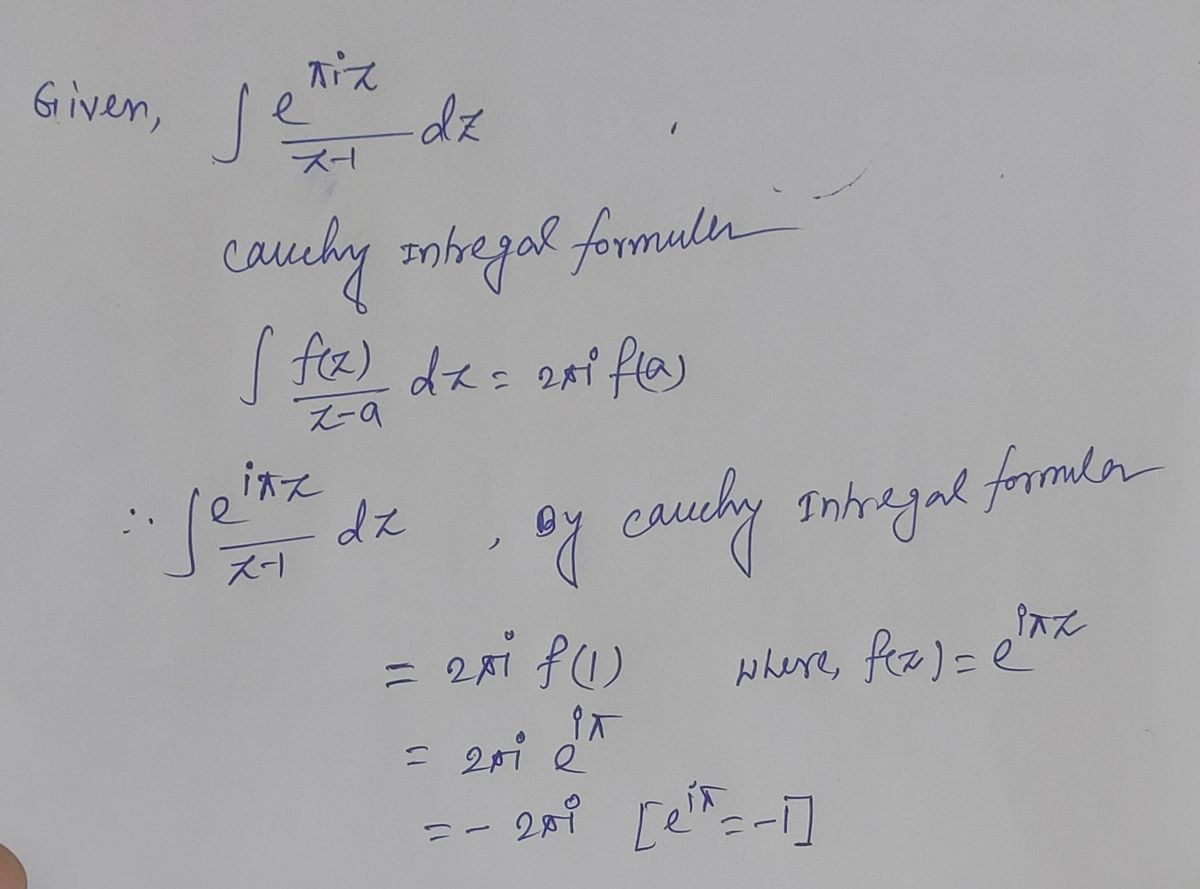 Given, ∫ e^{πiz}/(z-1) dz
cauchy Intregal formula
∫ f(z)/(z-a) dz = 2πi f(a)
∴ ∫ e^{iπz}/(z-1) dz , By cauchy Intregal formula
= 2πi f(1) where, f(z) = e^{iπz}
= 2πi e^{iπ}
= - 2πi [e^{iπ} = -1]